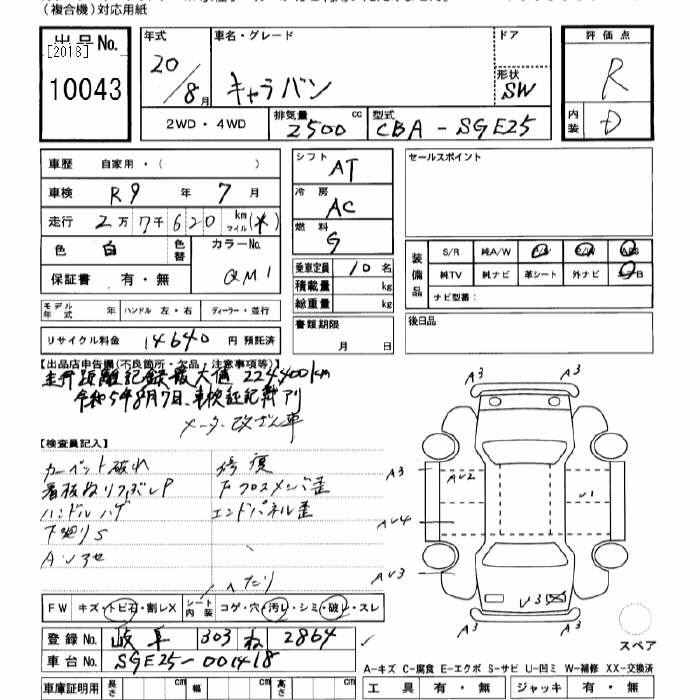 (複合機)対応用紙
出品No.
[2018]
10043
年式 20/8月
車名・グレード キャラバン
ドア
形状 SW
評価点 R
内装 D
2WD・4WD
排気量 2500 cc
型式 CBA-SGE25
車歴 自家用・( )
車検 R9 年 7 月
走行 2万7千620 km マイル (*)
色 白 色替
カラーNo. QM1
保証書 有・無
モデル年式 年 ハンドル 左・右 ディーラー・並行
リサイクル料金 14640 円 預託済
シフト AT
冷房 AC
燃料 G
乗車定員 10 名
積載量 kg
総重量 kg
書類期限
月 日
セールスポイント
装備品
S/R 純A/W P/S P/W ABS
純TV 純ナビ 革シート 外ナビ B
ナビ型番:
後日品
【出品店申告欄(不良箇所・欠品・注意事項等)】
走行距離記録最大値 224400km
令和5年8月7日、車検証記載アリ
メーター改ざん車
【検査員記入】
カーペット破れ 修復
看板ぬりつぶしP 下クロスメンバ歪
ハンドルハゲ エンドパネル歪
下廻りS
へたり
FW キズ・トビ石・割レX シート内装 コゲ・穴・汚レ・シミ・破レ・スレ
登録No. 岐阜 303 ね 2864
車台No. SGE25-001418
車庫証明用 長さ cm 幅 cm 高さ cm
A3
A3
A3
AU2
U1
AU4
AU3
U3
A3
スペア
A-キズ C-腐食 E-エクボ S-サビ U-凹ミ W-補修 XX-交換済
工具 有・無 ジャッキ 有・無